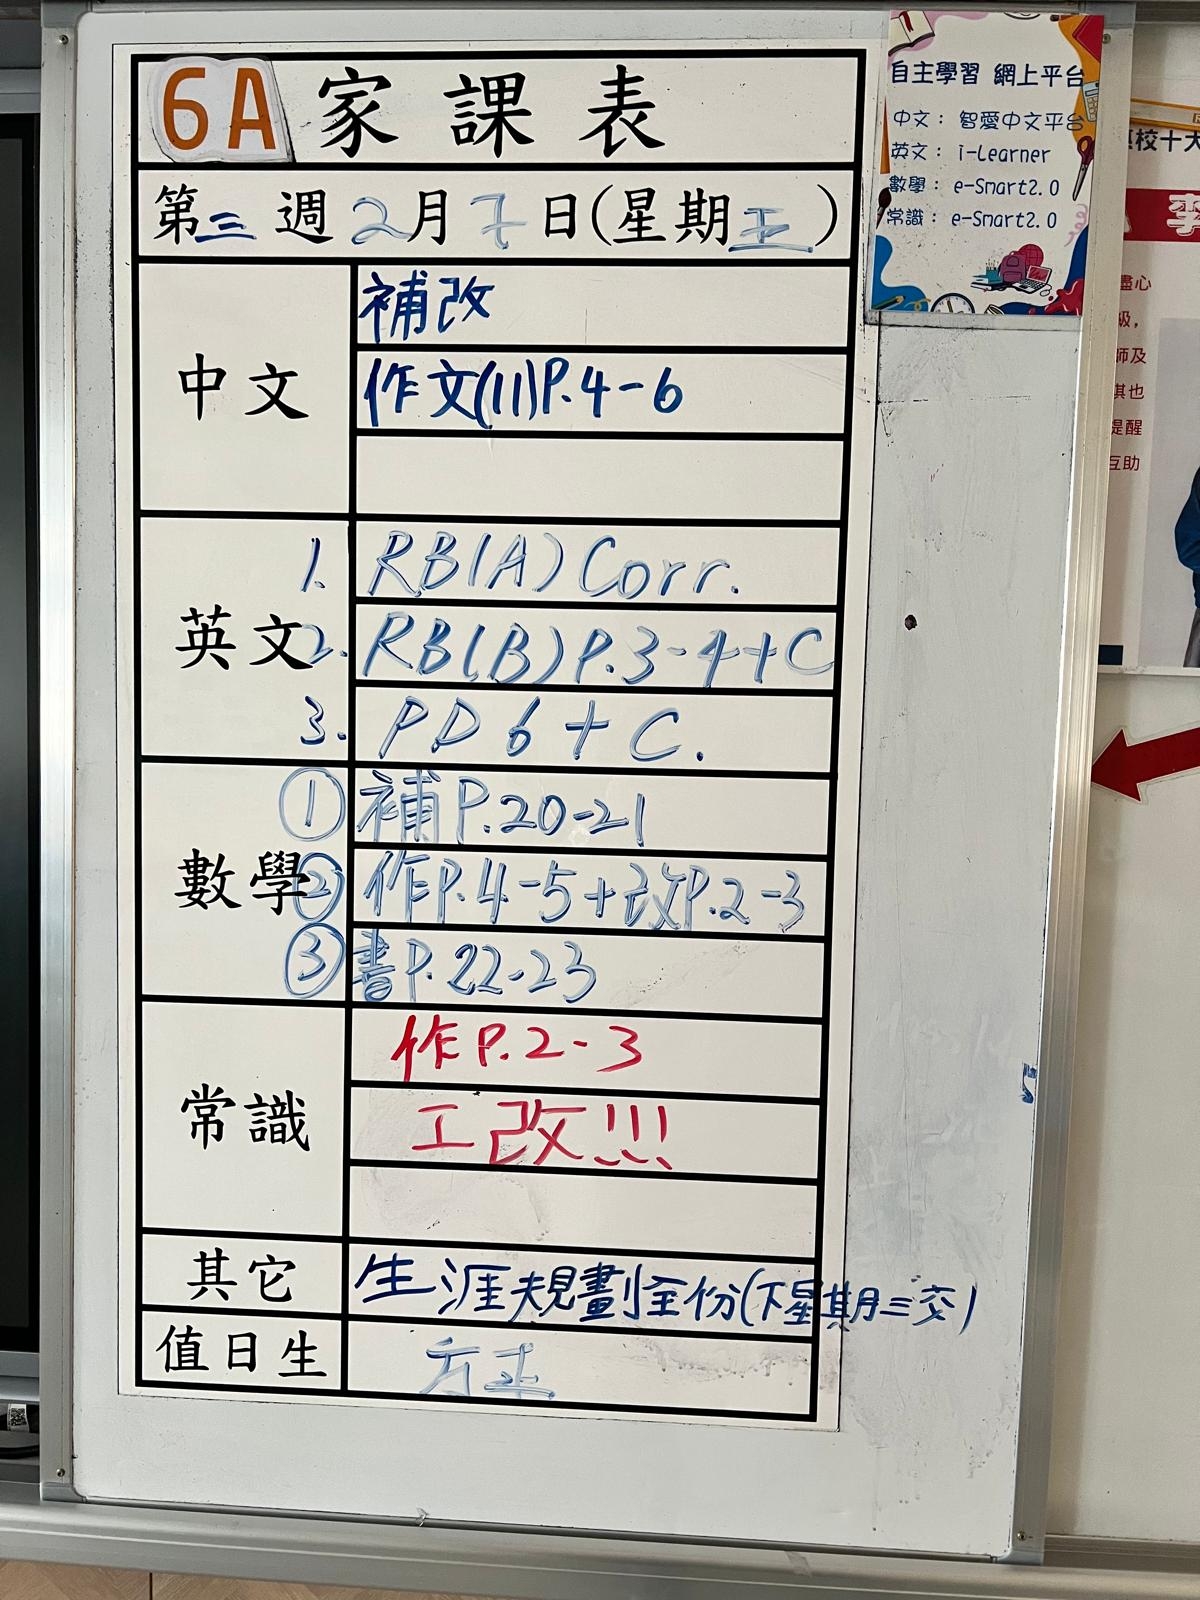 6A 家課表
第三週2月7日(星期五)
中文
補改
作文(11)P.4-6
英文
1. RB(A) Corr.
2. RB(B) P.3-4+C
3. PD 6 + C.
數學
① 補P.20-21
② 作P.4-5+改P.2-3
③ 書P.22-23
常識
作P.2-3
工改!!!
其它
生涯規劃全份(下星期三交)
值日生
自主學習 網上平台
中文： 智愛中文平台
英文： i-Learner
數學： e-Smart2.0
常識： e-Smart2.0
校十大
李
盡心
級，
師及
其也
提醒
互助